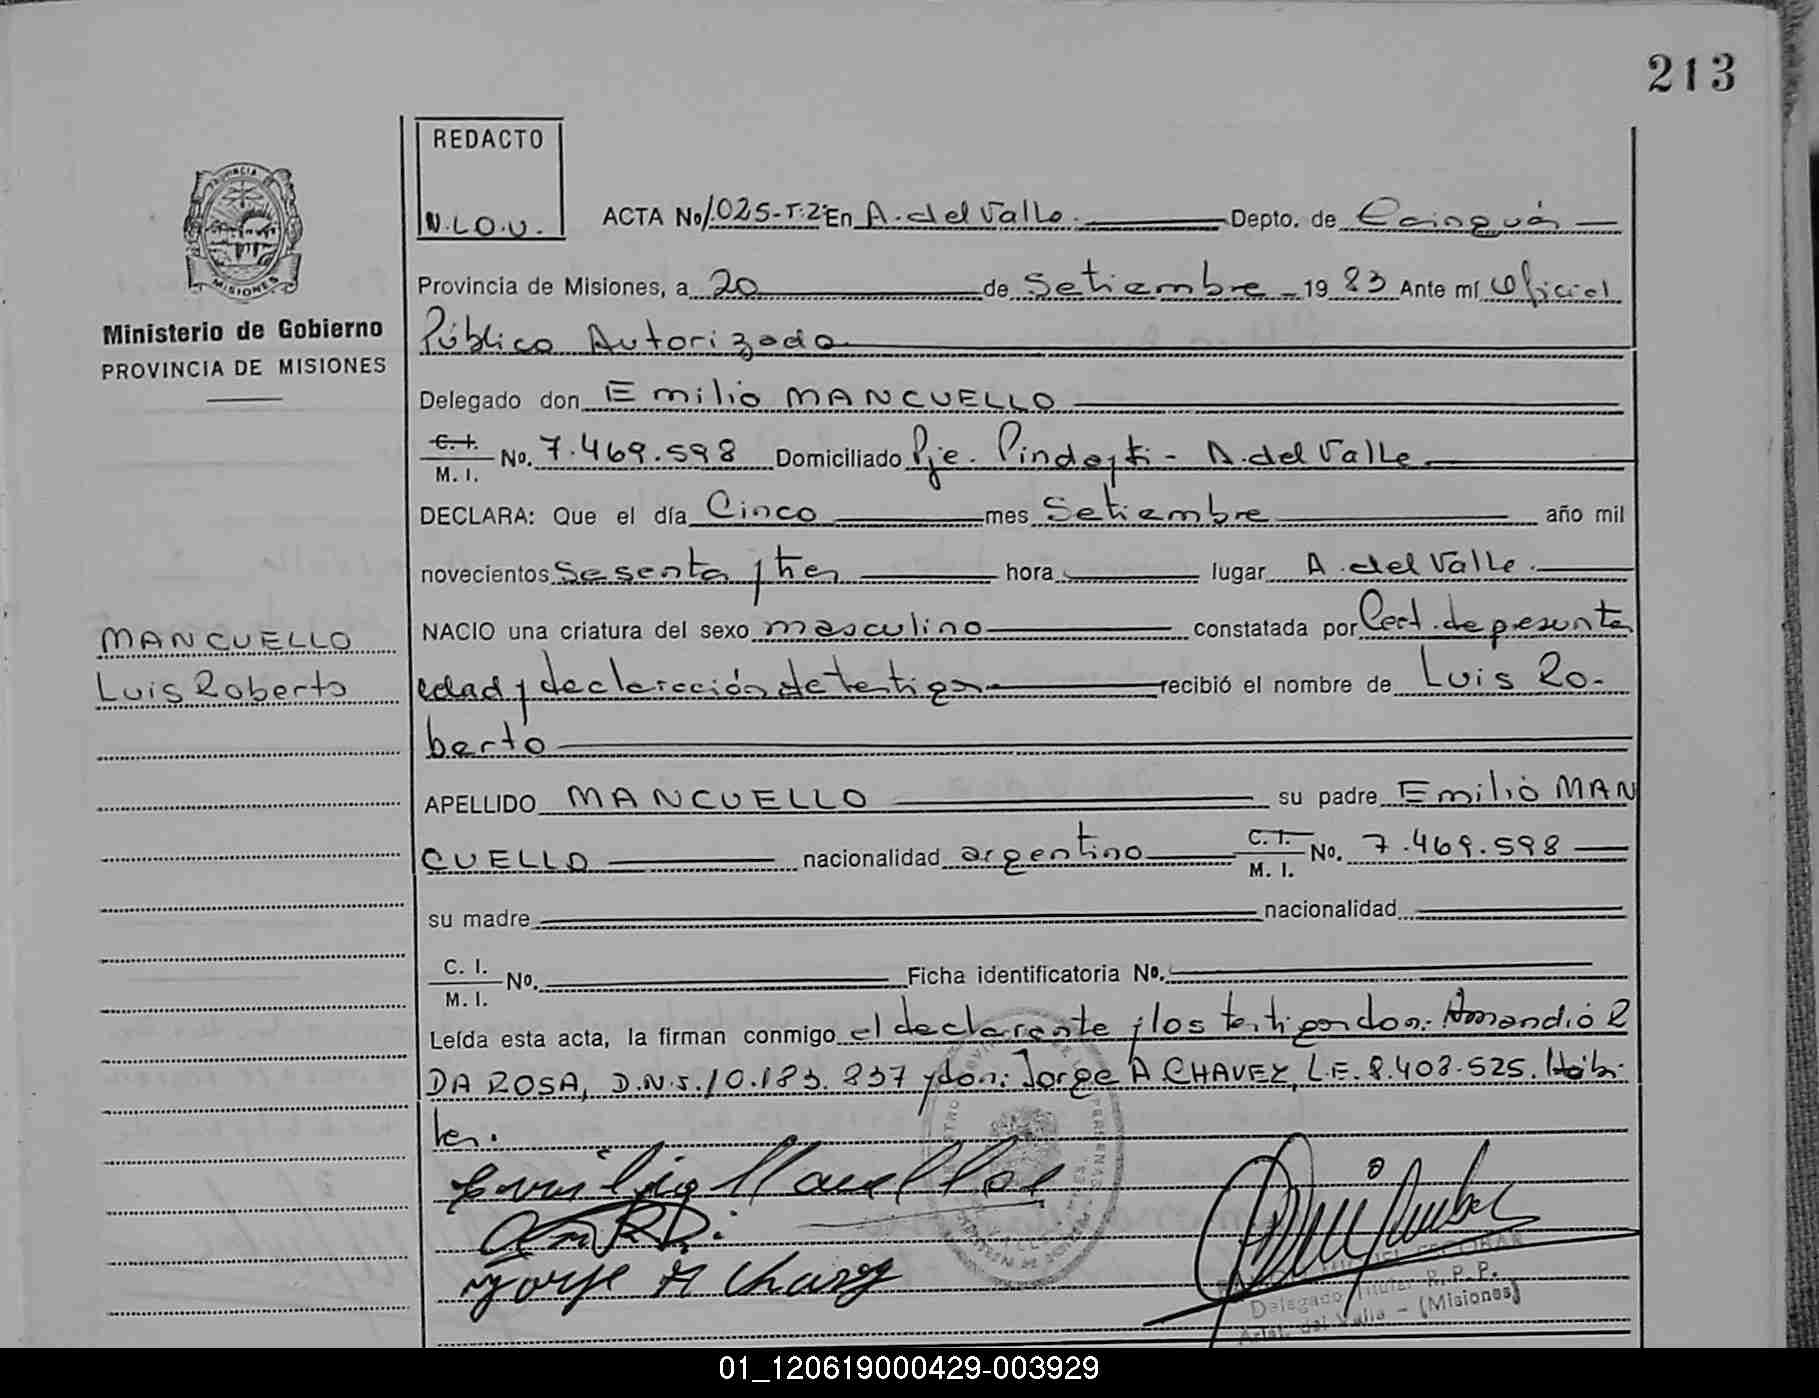 213
REDACTO
N.L.O.U.
ACTA No 1.025-T:2º En A. del Valle. Depto. de Cainguás
PROVINCIA DE
MISIONES
Ministerio de Gobierno
PROVINCIA DE MISIONES
Provincia de Misiones, a 20 de Setiembre 1983 Ante mí Oficial
Público Autorizado
Delegado don Emilio MANCUELLO
C. I. M. I. No. 7.469.598 Domiciliado Pje. Pindayti - A. del Valle
DECLARA: Que el día Cinco mes Setiembre año mil
novecientos Sesenta y tres hora lugar A. del Valle.
MANCUELLO
Luis Roberto
NACIO una criatura del sexo masculino constatada por Cert. de presunta
edad y declaración de testigos recibió el nombre de Luis Ro-
berto
APELLIDO MANCUELLO su padre Emilio MAN
CUELLO nacionalidad argentino C. I. M. I. No. 7.469.598
su madre nacionalidad
C. I. M. I. No. Ficha identificatoria No.
Leída esta acta, la firman conmigo el declarante y los testigos don: Amandio R
DA ROSA, D.N.I. 10.183.837 y don: Jorge A CHAVEZ, L.E. 8.408.525. Hábi-
les.
Jorge A Chavez
ESCOBAR
Delegado Titular R. P. P.
Arist. del Valle - (Misiones)
01_120619000429-003929